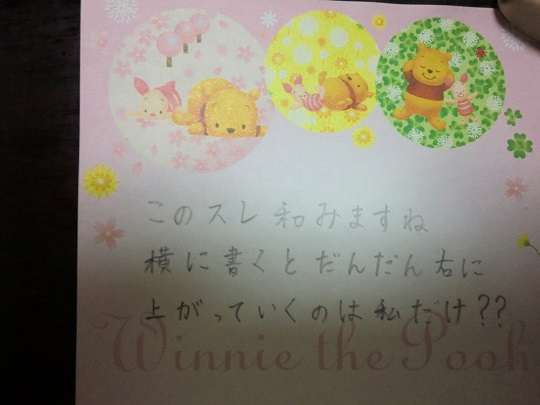 このスレ和みますね
横に書くとだんだん右に
上がっていくのは私だけ??
Winnie the Pooh